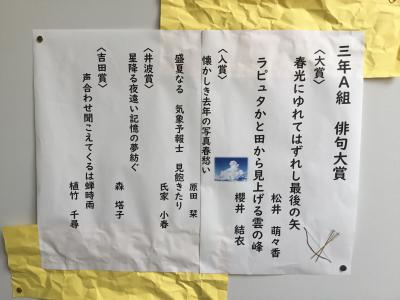 三年A組 俳句大賞
〈大賞〉
春光にゆれてはずれし最後の矢
松井 萌々香
ラピュタかと田から見上げる雲の峰
櫻井 結衣
〈入賞〉
懐かしき去年の写真春愁い
原田 栞
盛夏なる 気象予報士 見飽きたり
氏家 小春
〈井波賞〉
星降る夜遠い記憶の夢紡ぐ
森 塔子
〈吉田賞〉
声合わせ聞こえてくるは蝉時雨
植竹 千尋